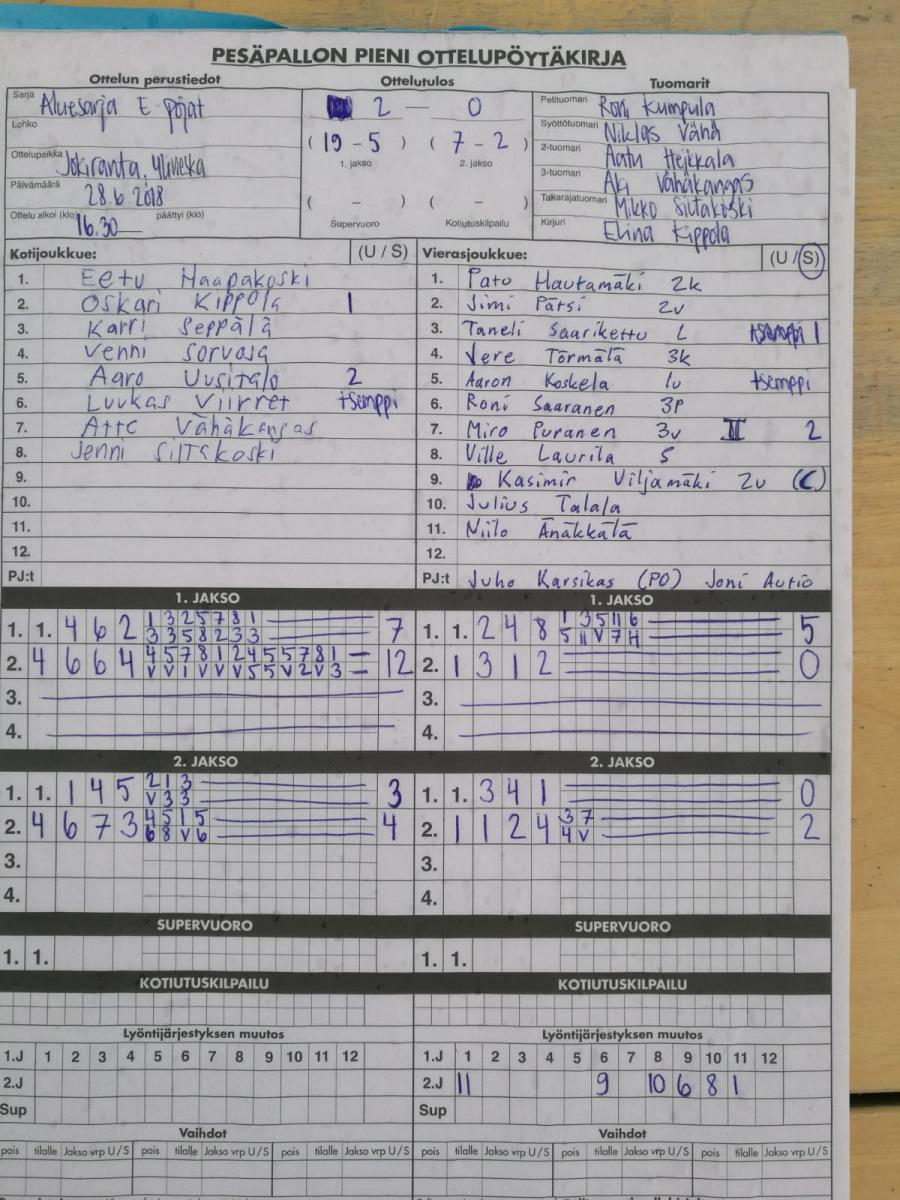 PESÄPALLON PIENI OTTELUPÖYTÄKIRJA
Ottelun perustiedot Ottelutulos Tuomarit
Sarja Aluesarja E-pojat
Lohko
Ottelupaikka Jokiranta, Ylivieska
Päivämäärä 28.6 2018
Ottelu alkoi (klo) 16.30 — päättyi (klo)
2 — 0
( 19 - 5 ) ( 7 - 2 )
1. jakso 2. jakso
( - ) ( - )
Supervuoro Kotiutuskilpailu
Pelituomari Roni Kumpula
Syöttötuomari Niklas Vähä
2-tuomari Aatu Heikkala
3-tuomari Aki Vähäkangas
Takarajatuomari Mikko Siltakoski
Kirjuri Elina Kippola
Kotijoukkue: (U / S)
1. Eetu Haapakoski
2. Oskari Kippola 1
3. Karri Seppälä
4. Venni Sorvoja
5. Aaro Uusitalo 2
6. Luukas Viirret tsemppi
7. Atte Vähäkangas
8. Jenni Siltakoski
9.
10.
11.
12.
PJ:t
Vierasjoukkue: (U / S)
1. Patu Hautamäki 2k
2. Simi Pätsi 2v
3. Taneli Saarikettu L tsemppi 1
4. Vere Törmälä 3k
5. Aaron Koskela 1v tsemppi
6. Roni Saaranen 3p
7. Miro Puranen 3v II 2
8. Ville Laurila S
9. Kasimir Viljamäki 2v (C)
10. Julius Talala
11. Niilo Änäkkälä
12.
PJ:t Juho Karsikas (PO) Joni Autio
1. JAKSO
1. 1. 4 6 2 1 3 2 5 7 8 1 7
3 3 5 8 2 3 3
2. 4 6 6 4 4 5 7 8 1 2 4 5 5 7 8 1 12
V V 1 V V V V 5 5 V 2 V 3
3.
4.
1. JAKSO
1. 1. 2 4 8 1 3 5 11 6 5
5 11 V 7 H
2. 1 3 1 2 0
3.
4.
2. JAKSO
1. 1. 1 4 5 2 1 3 3
V 3 3
2. 4 6 7 3 4 5 1 5 4
6 8 V 6
3.
4.
2. JAKSO
1. 1. 3 4 1 0
2. 1 1 2 4 3 7 2
4 V
3.
4.
SUPERVUORO
1. 1.
SUPERVUORO
1. 1.
KOTIUTUSKILPAILU
KOTIUTUSKILPAILU
Lyöntijärjestyksen muutos
1.J 1 2 3 4 5 6 7 8 9 10 11 12
2.J
Sup
Lyöntijärjestyksen muutos
1.J 1 2 3 4 5 6 7 8 9 10 11 12
2.J 11 9 10 6 8 1
Sup
Vaihdot
pois tilalle Jakso vrp U / S pois tilalle Jakso vrp U / S pois tilalle Jakso vrp U / S
Vaihdot
pois tilalle Jakso vrp U / S pois tilalle Jakso vrp U / S pois tilalle Jakso vrp U / S